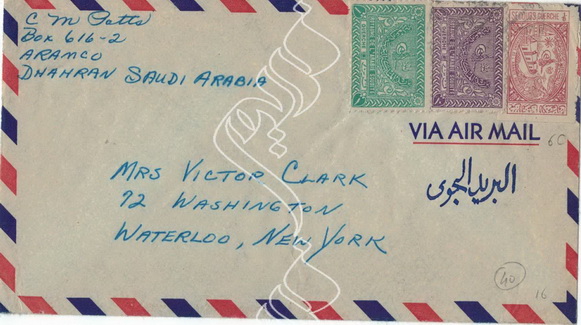 C M Potts
Box 616-2
ARAMCO
DHAHRAN SAUDI ARABIA
VIA AIR MAIL
البريد الجوي
60
MRS VICTOR CLARK
72 WASHINGTON
WATERLOO, NEW YORK
40
16